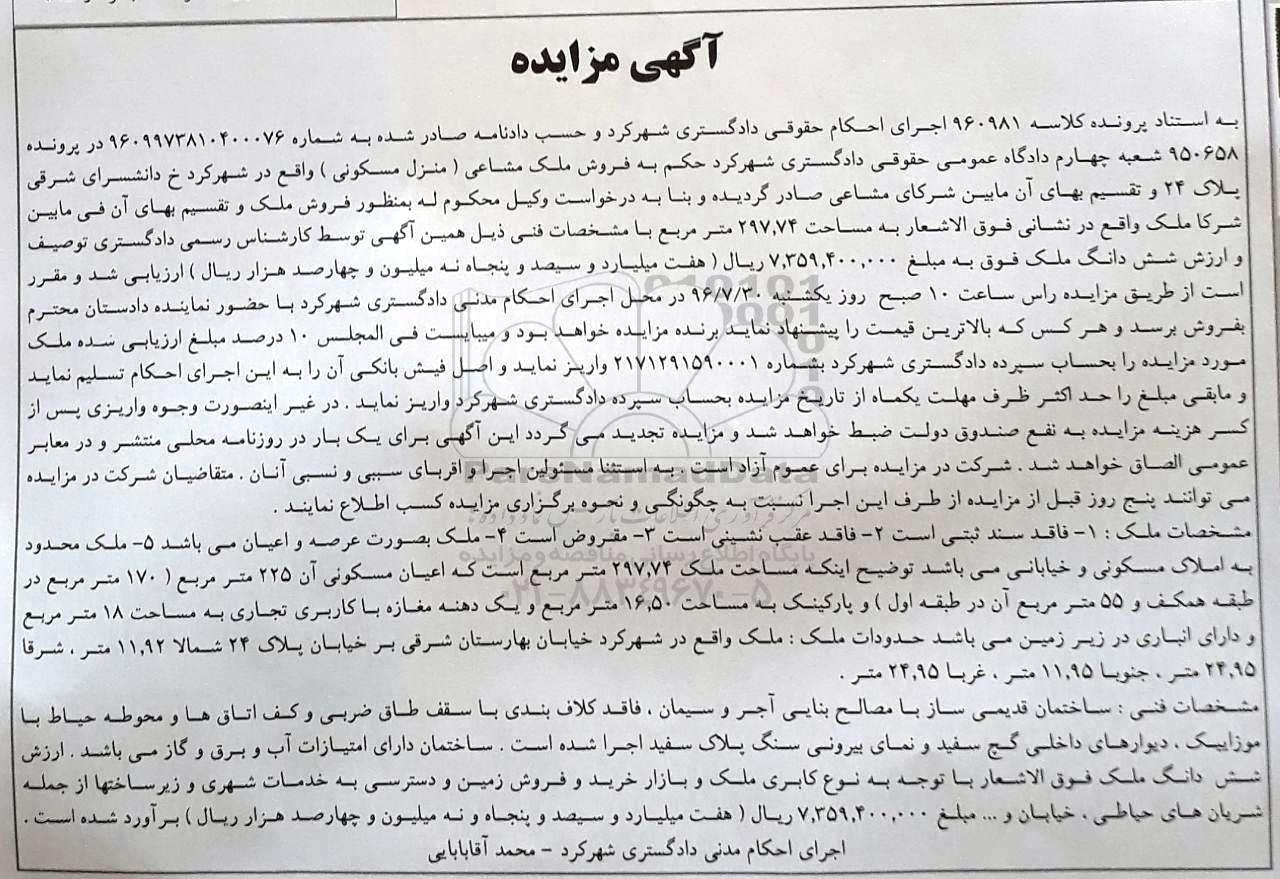 آگهی مزایده
به استناد پرونده کلاسه ۹۶۰۹۸۱ اجرای احکام حقوقی دادگستری شهرکرد و حسب دادنامه صادر شده به شماره ۹۶۰۹۹۷۳۸۱۰۴۰۰۰۷۶ در پرونده
۹۵۰۶۵۸ شعبه چهارم دادگاه عمومی حقوقی دادگستری شهرکرد حکم به فروش ملک مشاعی ( منزل مسکونی ) واقع در شهرکرد خ دانشسرای شرقی
پلاک ۲۴ و تقسیم بهای آن مابین شرکای مشاعی صادر گردیده و بنا به درخواست وکیل محکوم له بمنظور فروش ملک و تقسیم بهای آن فی مابین
شرکا ملک واقع در نشانی فوق الاشعار به مساحت ۲۹۷,۷۴ متر مربع با مشخصات فنی ذیل همین آگهی توسط کارشناس رسمی دادگستری توصیف
و ارزش شش دانگ ملک فوق به مبلغ ۷,۳۵۹,۴۰۰,۰۰۰ ریال ( هفت میلیارد و سیصد و پنجاه نه میلیون و چهارصد هزار ریال ) ارزیابی شد و مقرر
است از طریق مزایده راس ساعت ۱۰ صبح روز یکشنبه ۹۶/۷/۳۰ در محل اجرای احکام مدنی دادگستری شهرکرد با حضور نماینده دادستان محترم
بفروش برسد و هر کس که بالاترین قیمت را پیشنهاد نماید برنده مزایده خواهد بود و میبایست فی المجلس ۱۰ درصد مبلغ ارزیابی شده ملک
مورد مزایده را بحساب سپرده دادگستری شهرکرد بشماره ۲۱۷۱۲۹۱۵۹۰۰۰۱ واریز نماید و اصل فیش بانکی آن را به این اجرای احکام تسلیم نماید
و مابقی مبلغ را حد اکثر ظرف مهلت یکماه از تاریخ مزایده بحساب سپرده دادگستری شهرکرد واریز نماید . در غیر اینصورت وجوه واریزی پس از
کسر هزینه مزایده به نفع صندوق دولت ضبط خواهد شد و مزایده تجدید می گردد این آگهی برای یک بار در روزنامه محلی منتشر و در معابر
عمومی الصاق خواهد شد . شرکت در مزایده برای عموم آزاد است . به استثنا مسئولین اجرا و اقربای سببی و نسبی آنان . متقاضیان شرکت در مزایده
می توانند پنج روز قبل از مزایده از طرف این اجرا نسبت به چگونگی و نحوه برگزاری مزایده کسب اطلاع نمایند .
مشخصات ملک : ۱- فاقد سند ثبتی است ۲- فاقد عقب نشینی است ۳- مقروض است ۴- ملک بصورت عرصه و اعیان می باشد ۵- ملک محدود
به املاک مسکونی و خیابانی می باشد توضیح اینکه مساحت ملک ۲۹۷,۷۴ متر مربع است که اعیان مسکونی آن ۲۲۵ متر مربع ( ۱۷۰ متر مربع در
طبقه همکف و ۵۵ متر مربع آن در طبقه اول ) و پارکینک به مساحت ۱۶,۵۰ متر مربع و یک دهنه مغازه با کاربری تجاری به مساحت ۱۸ متر مربع
و دارای انباری در زیر زمین می باشد حدودات ملک : ملک واقع در شهرکرد خیابان بهارستان شرقی بر خیابان پلاک ۲۴ شمالا ۱۱,۹۲ متر ، شرقا
۲۴,۹۵ متر ، جنوبا ۱۱,۹۵ متر ، غربا ۲۴,۹۵ متر .
مشخصات فنی : ساختمان قدیمی ساز با مصالح بنایی آجر و سیمان ، فاقد کلاف بندی با سقف طاق ضربی و کف اتاق ها و محوطه حیاط با
موزاییک ، دیوارهای داخلی گچ سفید و نمای بیرونی سنگ پلاک سفید اجرا شده است . ساختمان دارای امتیازات آب و برق و گاز می باشد . ارزش
شش دانگ ملک فوق الاشعار با توجه به نوع کابری ملک و بازار خرید و فروش زمین و دسترسی به خدمات شهری و زیرساختها از جمله
شریان های حیاطی ، خیابان و ... مبلغ ۷,۳۵۹,۴۰۰,۰۰۰ ریال ( هفت میلیارد و سیصد و پنجاه و نه میلیون و چهارصد هزار ریال ) برآورد شده است .
اجرای احکام مدنی دادگستری شهرکرد - محمد آقابابایی
ParsNamadData
پایگاه اطلاع رسانی مناقصه و مزایده
۰۲۱-۸۸۳۴۹۶۷۰-۵